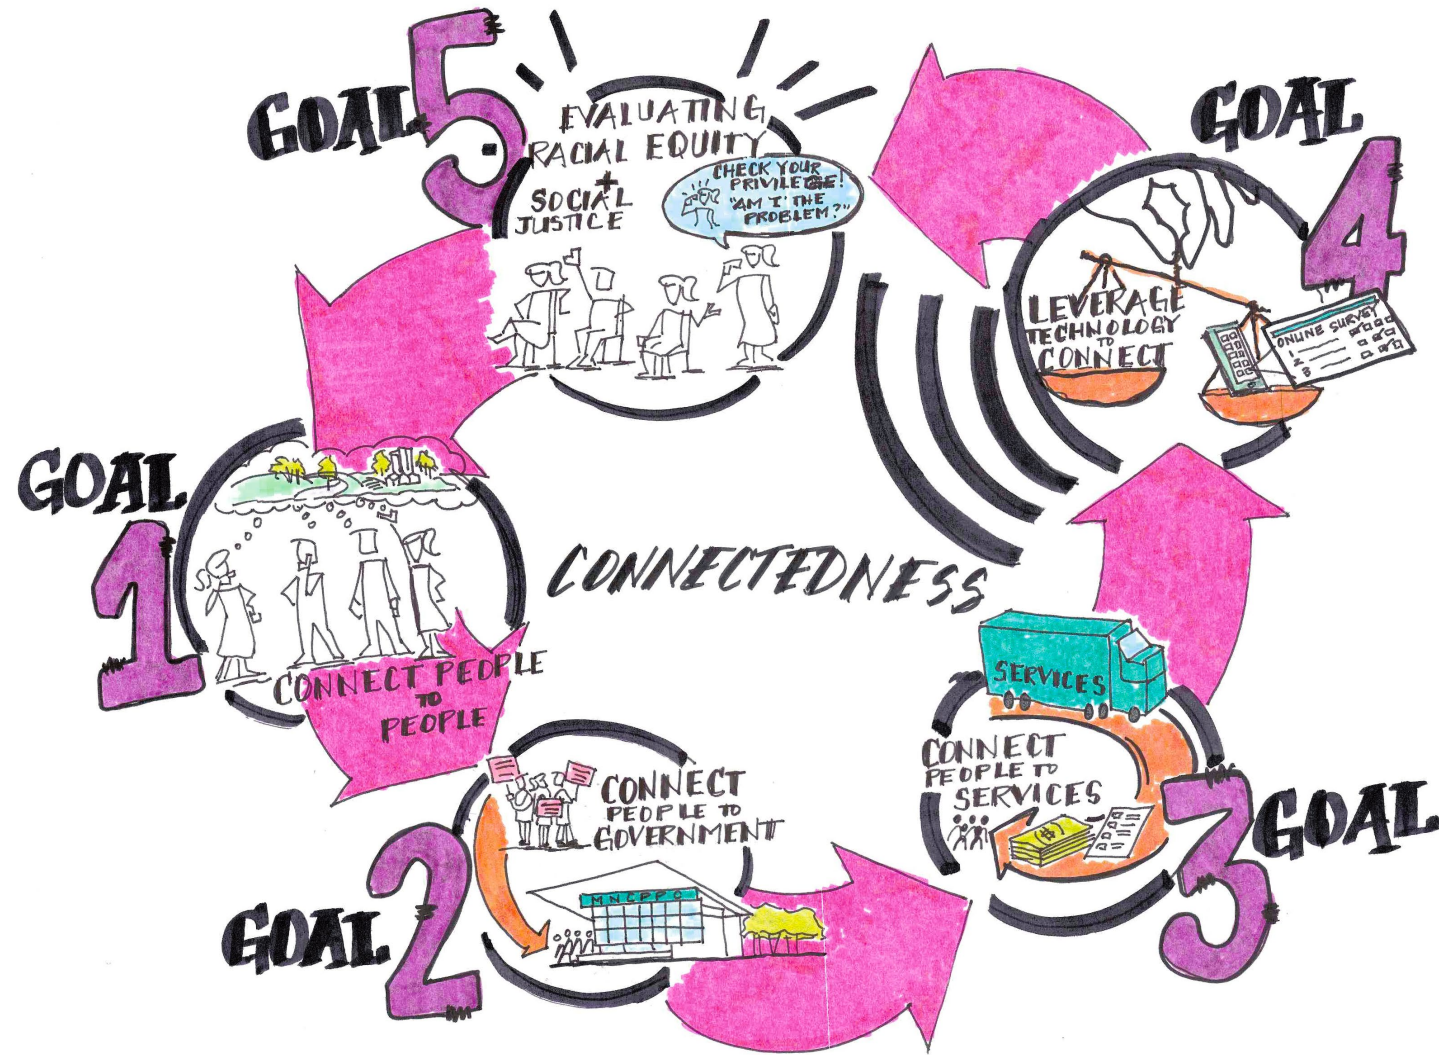 GOAL 5.
EVALUATING
RACIAL EQUITY
+
SOCIAL
JUSTICE
CHECK YOUR
PRIVILEGE!
"AM I THE
PROBLEM?"
GOAL
4
LEVERAGE
TECHNOLOGY
TO
CONNECT
ONLINE SURVEY
GOAL
1
CONNECT PEOPLE
TO
PEOPLE
CONNECTEDNESS
GOAL 2
CONNECT
PEOPLE TO
GOVERNMENT
MNCPPC
SERVICES
CONNECT
PEOPLE TO
SERVICES
$
3 GOAL